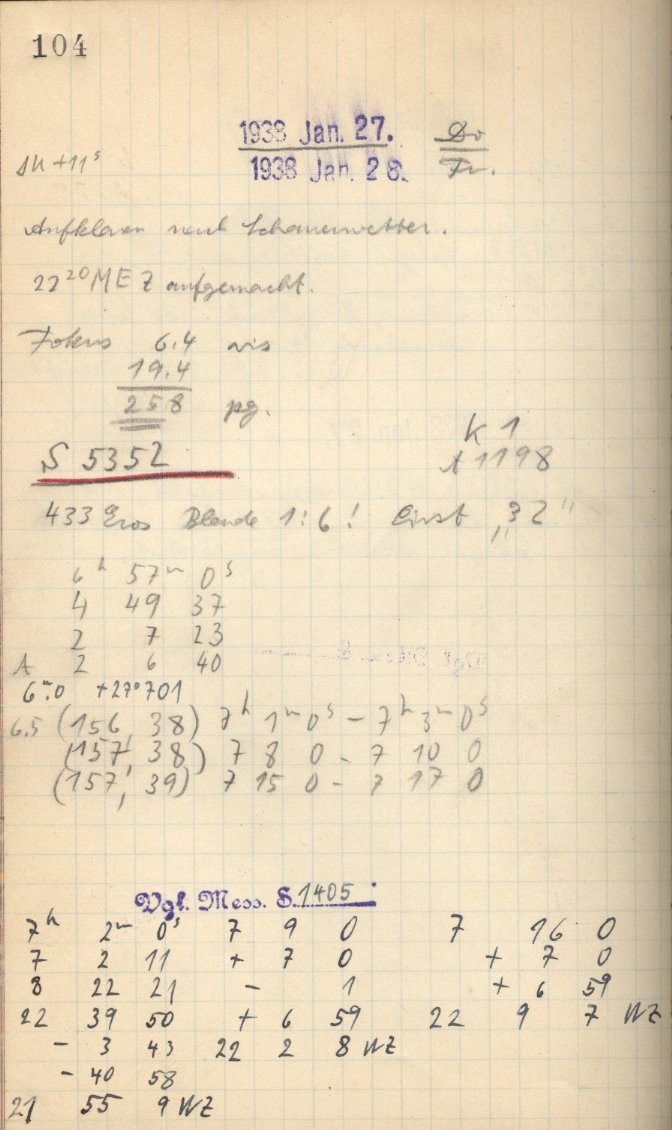 104
1938 Jan. 27. Do
1938 Jan. 28. Fr.
+11ˢ
Aufklaren nach Schauerwetter.
22²⁰ MEZ aufgemacht.
Fokus 6.4 vis
19.4
25.8 pg.
K 1
S 5352 A 1198
433 Eros Blende 1:6! Einst „32“
6ʰ 57ᵐ 0ˢ
4 49 37
2 7 23
A 2 6 40
6ᵐ.0 +27°701
6.5 (156, 38) 7ʰ 1ᵐ 0ˢ – 7ʰ 3ᵐ 0ˢ
(157, 38) 7 8 0 – 7 10 0
(157, 39) 7 15 0 – 7 17 0
Vgl. Mess. S. 1405
7ʰ 2ᵐ 0ˢ 7 9 0 7 16 0
7 2 11 + 7 0 + 7 0
8 22 21 – 1 + 6 59
22 39 50 + 6 59 22 9 7 WZ
– 3 43 22 2 8 WZ
– 40 58
21 55 9 WZ